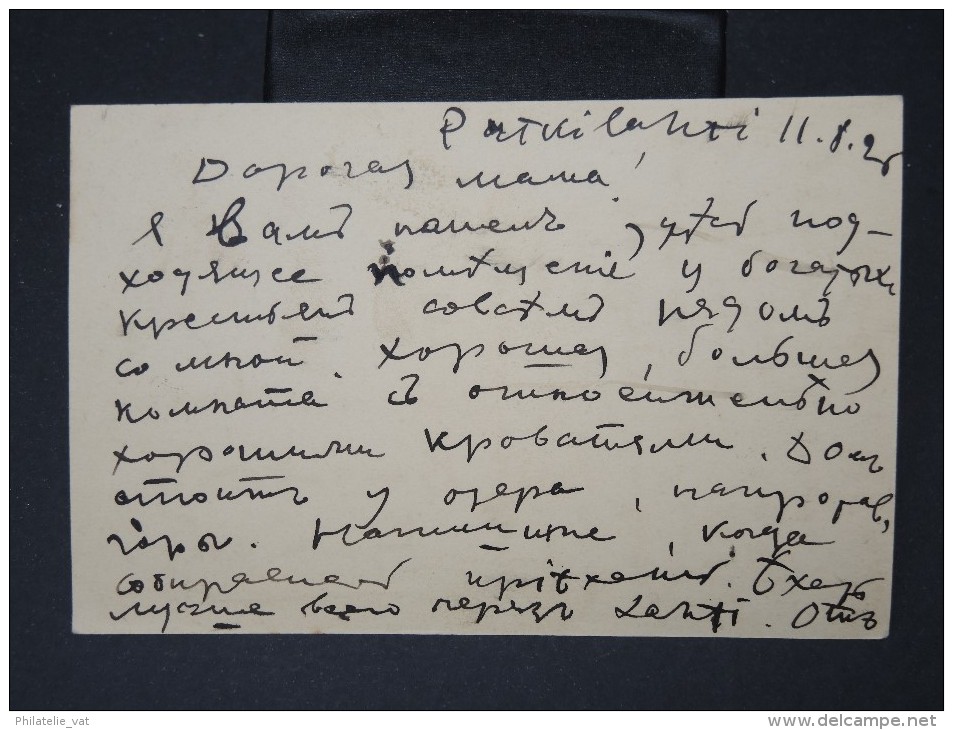 Putkilahti 11.8.26
Дорогая мама,
я Вамъ нашелъ здѣсь под-
ходящее помѣщеніе у богатыхъ
крестьянъ совсѣмъ рядомъ
со мной. хорошая, большая
комната съ относительно
хорошими кроватями. Домъ
стоитъ у озера,
горы. Напишите, когда
собираетесь пріѣхать. Ѣхать
лучше всего черезъ Lahti. Отъ
Philatelie_vat
www.delcampe.net